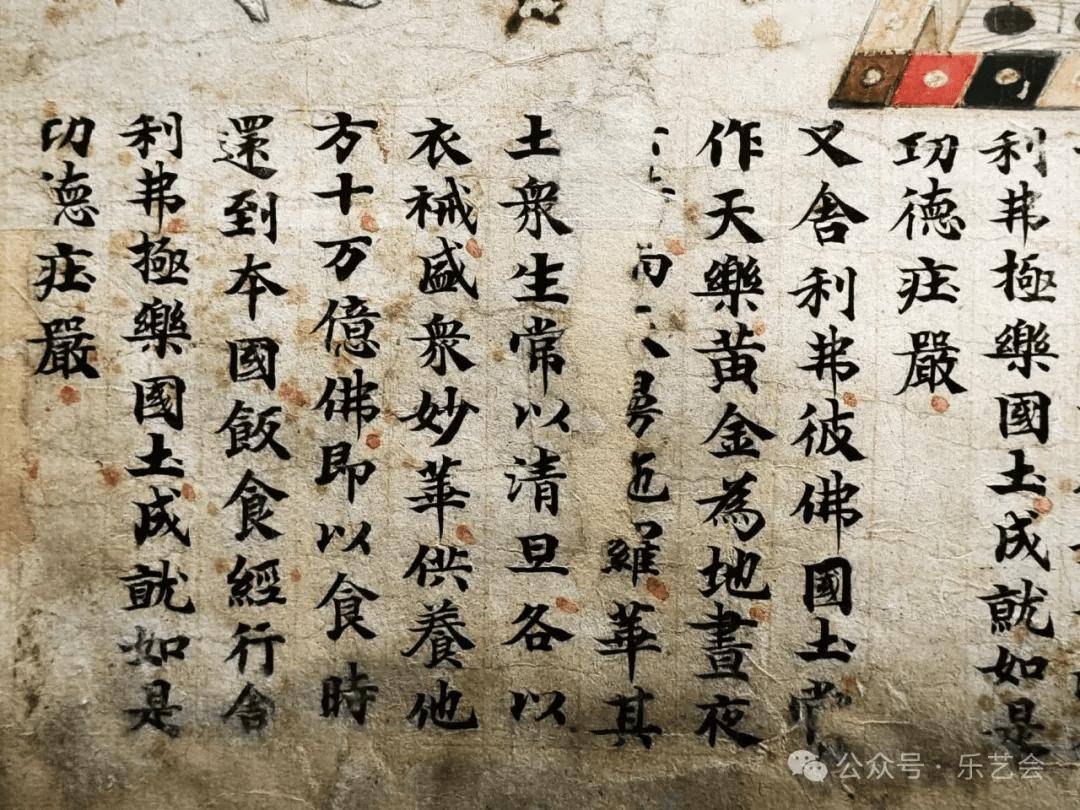 利弗極樂國土成就如是
功德莊嚴
又舍利弗彼佛國土常
作天樂黃金為地晝夜
羅華其
土衆生常以清旦各以
衣祴盛衆妙華供養他
方十万億佛即以食時
還到本國飯食經行舍
利弗極樂國土成就如是
功德莊嚴
公众号·乐艺会